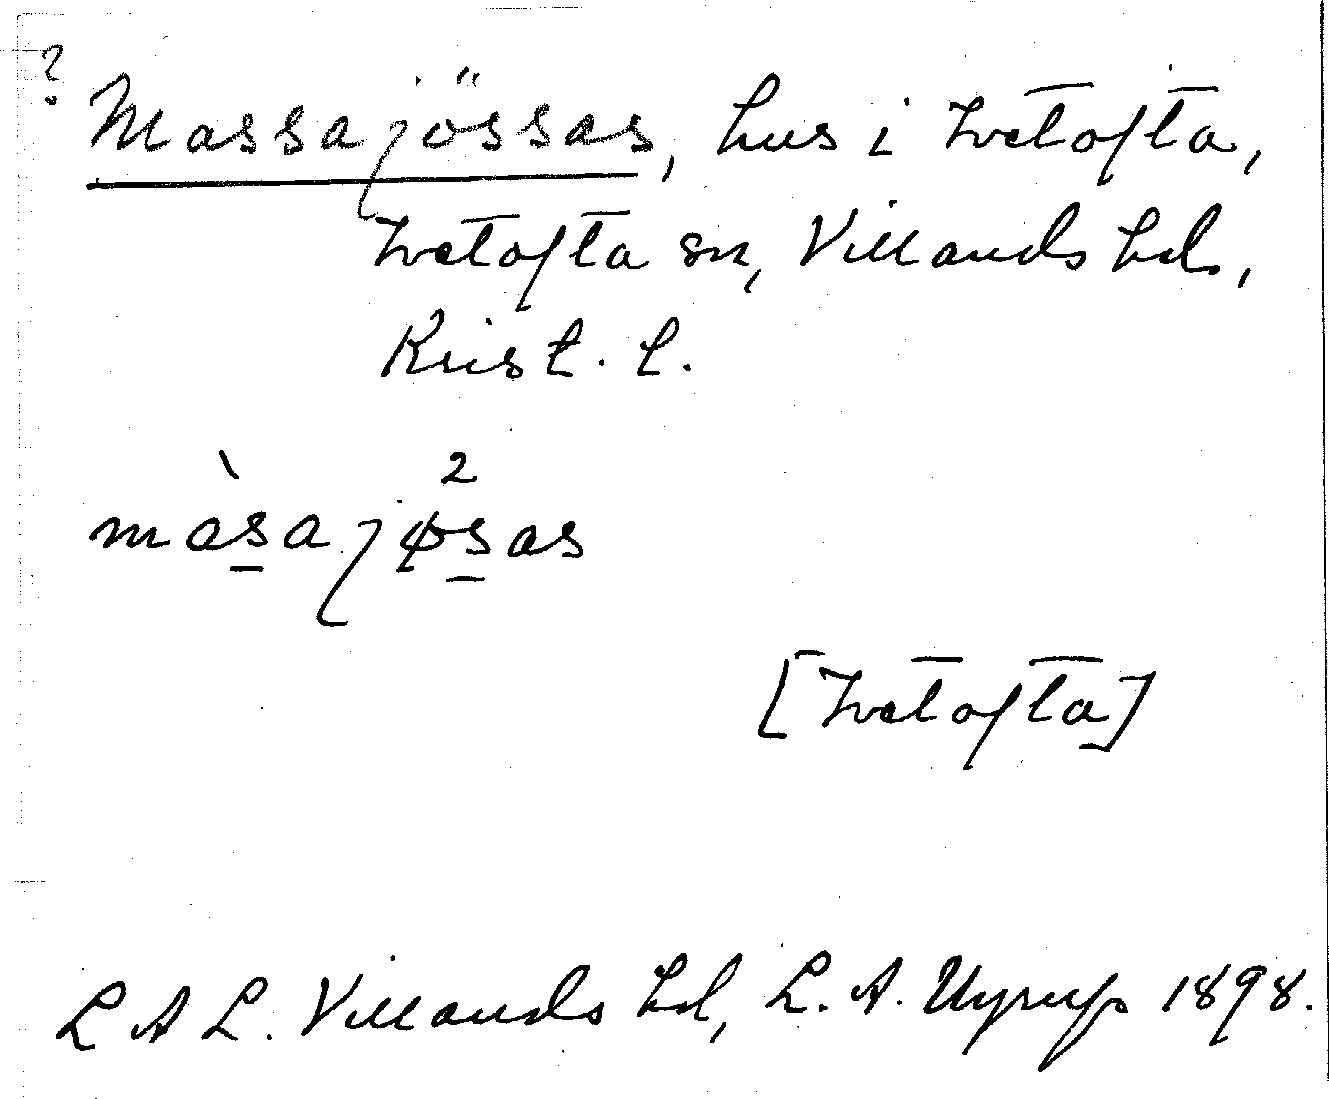 ? Massajössas, hus i Ivetofta,
Ivetofta sn, Villands hd.,
Krist. l.
2
màsajøsas
[Ivetofta]
L A L. Villands hd, L. A. Nyrup 1898.